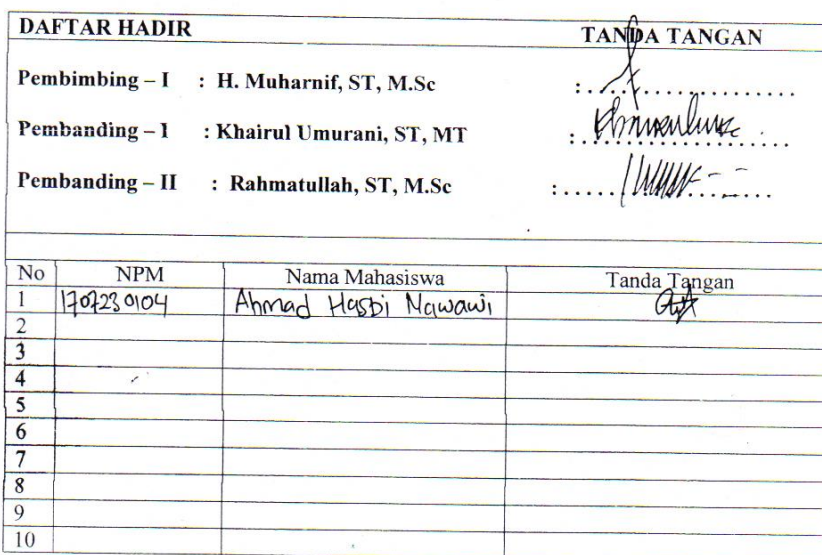 DAFTAR HADIR TANDA TANGAN
Pembimbing – I : H. Muharnif, ST, M.Sc :....................
Pembanding – I : Khairul Umurani, ST, MT :....................
Pembanding – II : Rahmatullah, ST, M.Sc :....................
No NPM Nama Mahasiswa Tanda Tangan
1 1707230104 Ahmad Hasbi Mawawi
2
3
4
5
6
7
8
9
10